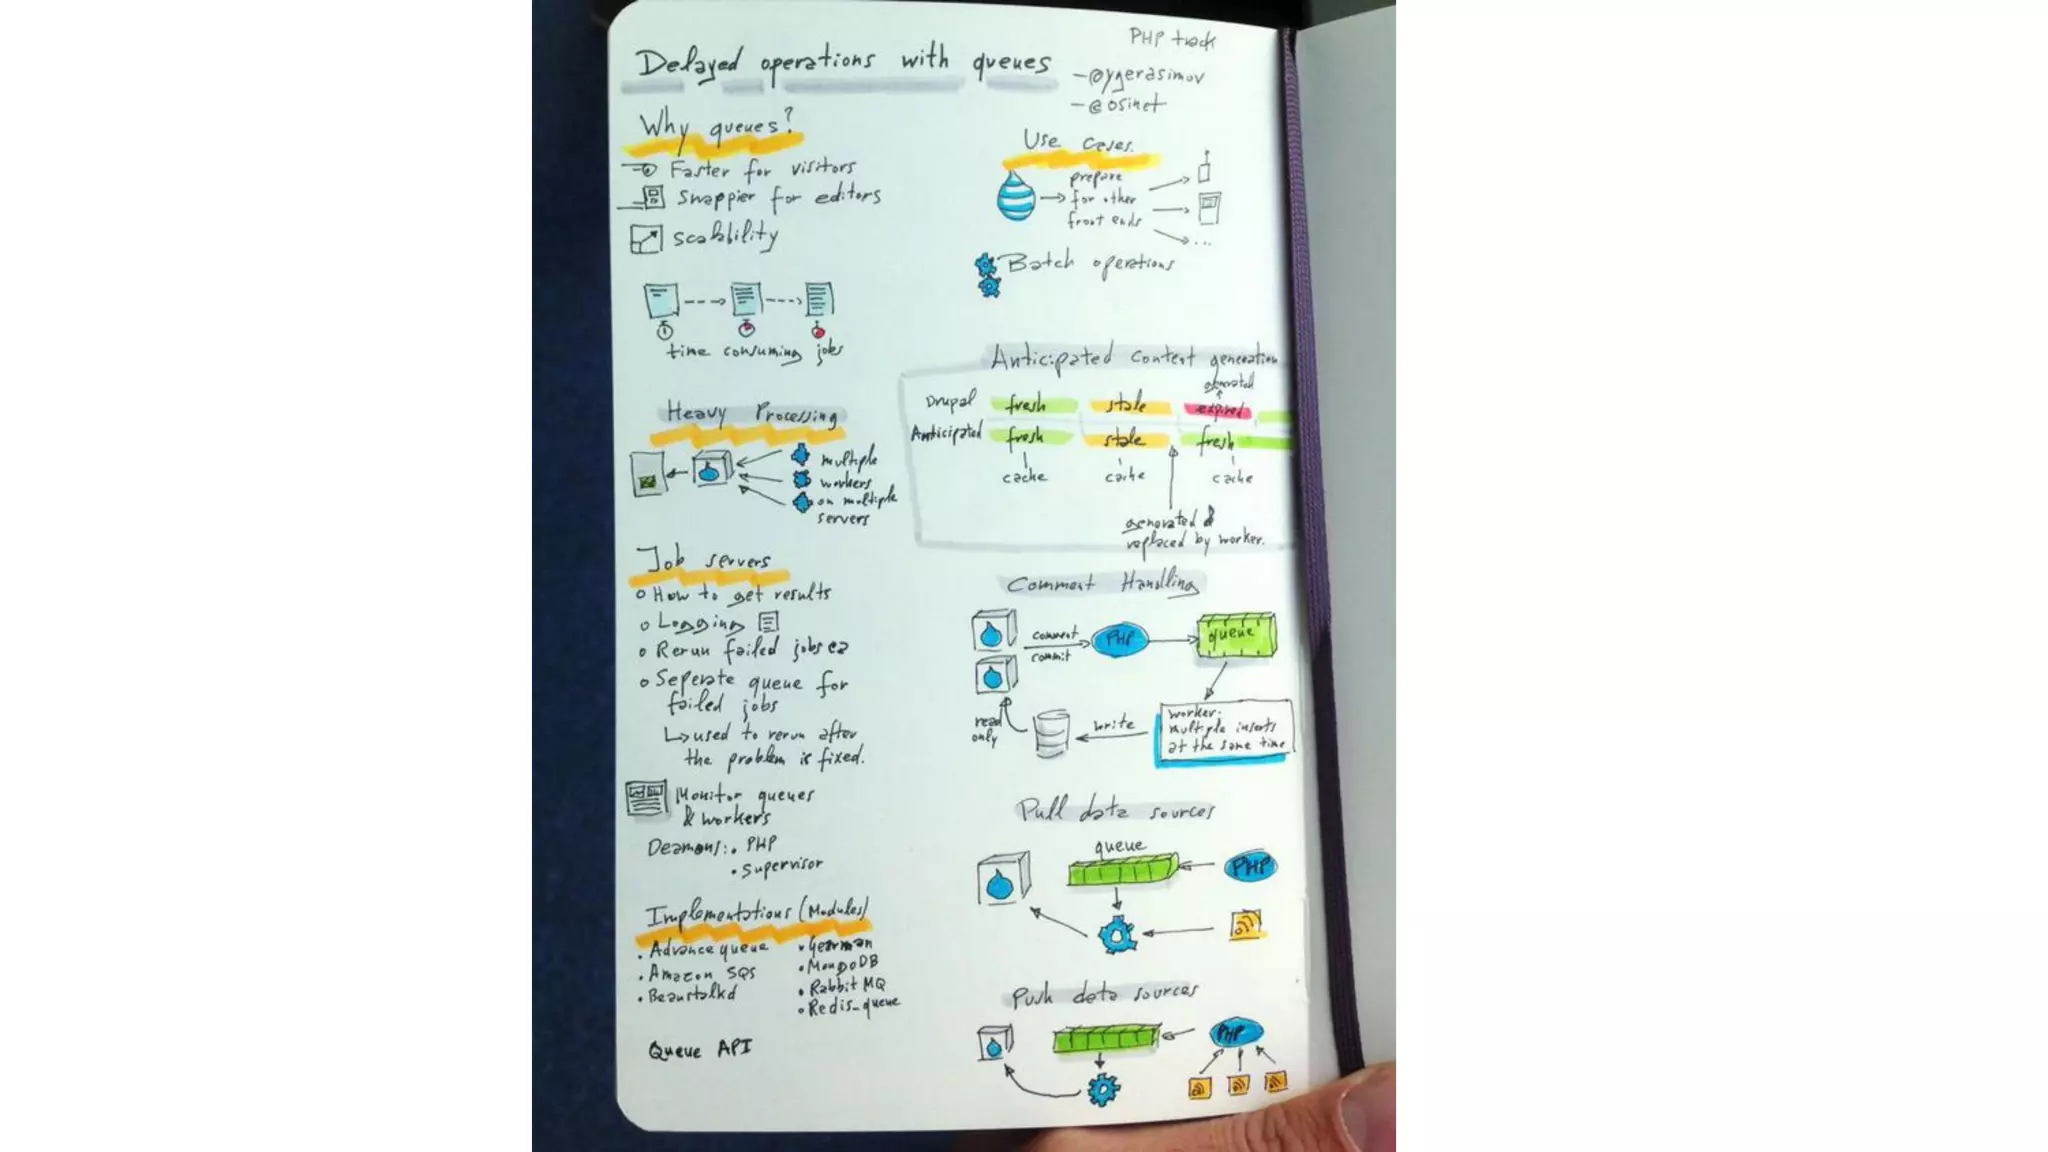 Delayed operations with queues
PHP track
- @ygerasimov
- @osinet
Why queues?
Faster for visitors
Snappier for editors
Scalability
time consuming jobs
Heavy Processing
multiple
workers
on multiple
servers
Job servers
How to get results
Logging
Rerun failed jobs
Seperate queue for
failed jobs
used to rerun after
the problem is fixed.
Monitor queues
& workers
Deamons: • PHP
• Supervisor
Implementations (Modules)
• Advance queue
• Amazon SQS
• Beanstalkd
• Gearman
• MongoDB
• Rabbit MQ
• Redis_queue
Queue API
Use cases.
prepare
for other
front ends
...
Batch operations
Anticipated content generation
generated
Drupal fresh stale expired
Anticipated fresh stale fresh
cache cache cache
generated &
replaced by worker.
Comment Handling
comment
commit
PHP
queue
read
only
write
worker:
multiple inserts
at the same time
Pull data sources
queue
PHP
Push data sources
PHP